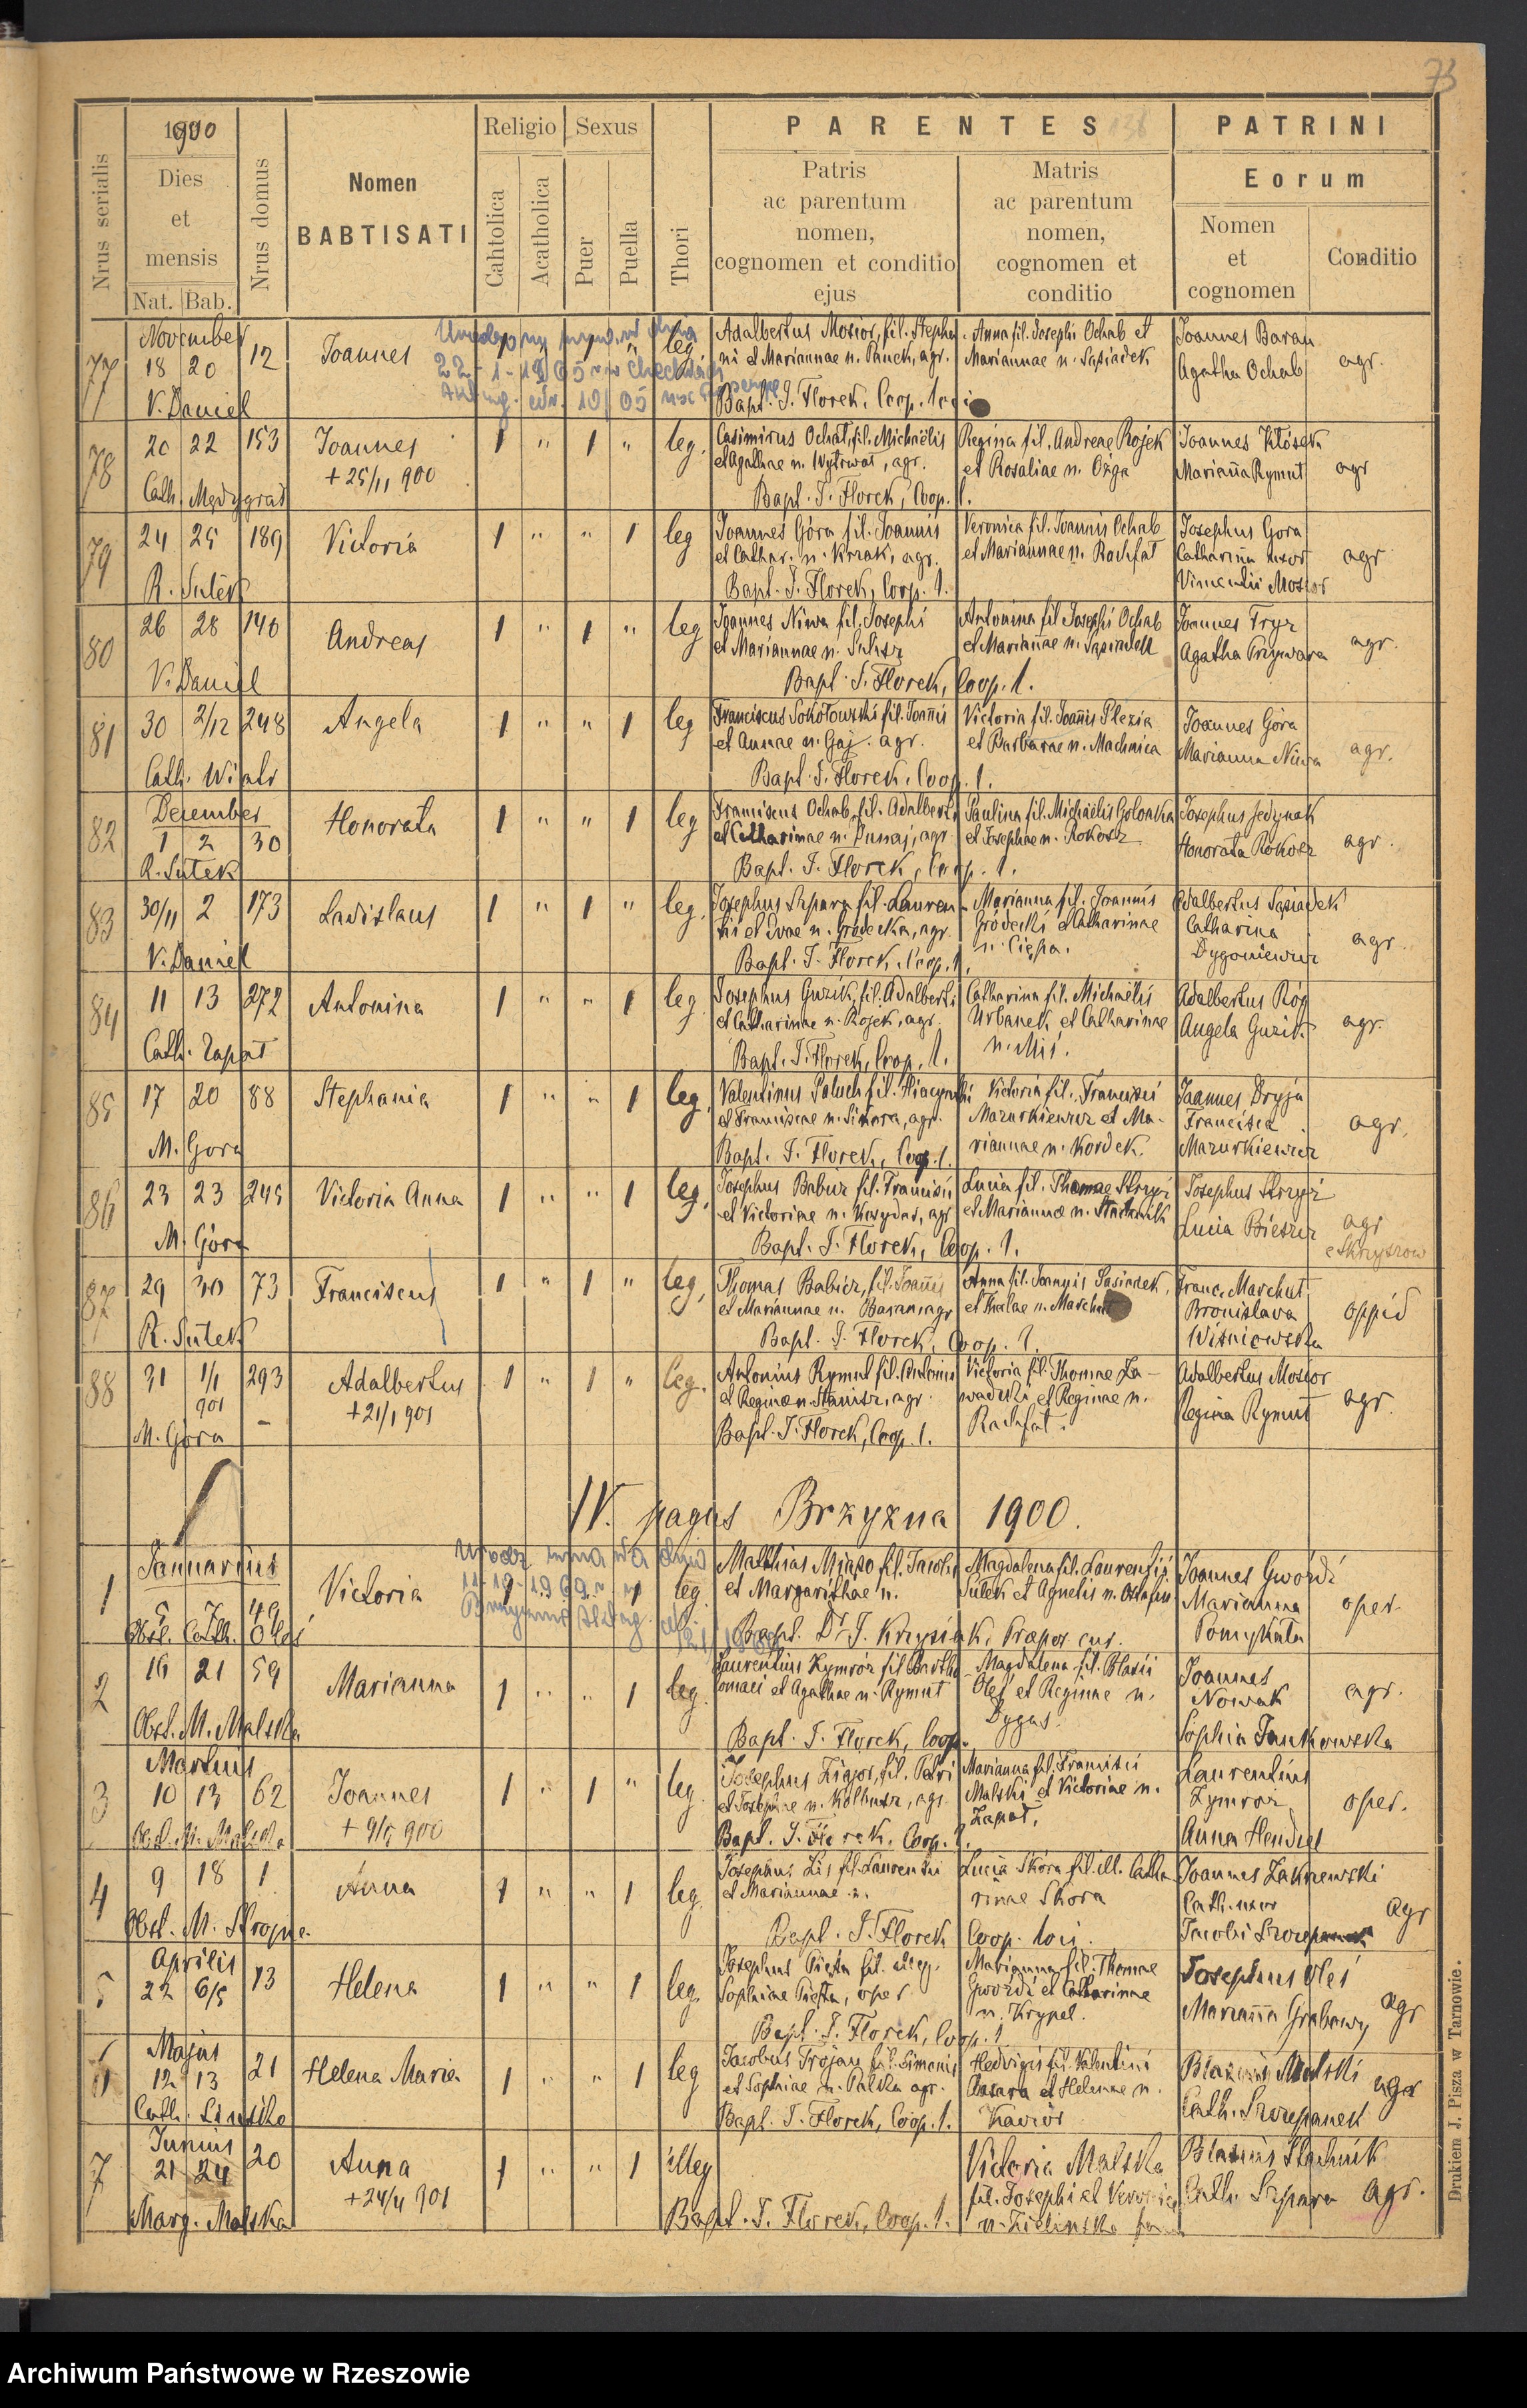 73
1900
Nrus serialis
Dies
et
mensis
Nat. Bab.
Nrus domus
Nomen
BABTISATI
Religio
Cahtolica
Acatholica
Sexus
Puer
Puella
Thori
PARENTES
Patris
ac parentum
nomen,
cognomen et conditio
ejus
Matris
ac parentum
nomen,
cognomen et
conditio
PATRINI
Eorum
Nomen
et
cognomen
Conditio
77 November 18 20 12 Joannes leg. Adalbertus Mosior, fil. Stepha- Anna fil. Josephi Ochab et Joannes Baran agr.
ni et Mariannae n. agr. Mariannae n. Sąsiadek Agatha Ochab
V. Daniel Bapt. J. Florek, Coop.
78 20 22 153 Joannes 1 " 1 " leg. Casimirus fil. Michaëlis Regina fil. Andreae Rojek Joannes Kłósek agr
+ 25/11 900 et Agathae n. Wytrwał, agr. et Rosaliae n. Ożga Marianna Rymut
Cath. Mędygrał Bapt. J. Florek, Coop. l.
79 24 25 189 Victoria 1 " " 1 leg Joannes Góra fil. Joannis Veronica fil. Joannis Ochab Josephus Gora agr.
et Cathar. n. agr. et Mariannae n. Rachfał Catharina uxor
R. Sutek Bapt. J. Florek, Coop. l. Vincentii Mosior
80 26 28 146 Andreas 1 " 1 " leg Joannes Niwa fil. Josephi Antonina fil Josephi Ochab Joannes Fryz agr.
et Mariannae n. et Mariannae n. Sąsiadek Agatha Przywara
V. Daniel Bapt. J. Florek, Coop. l.
81 30 2/12 248 Angela 1 " " 1 leg Franciscus Sokołowski fil. Joannis Victoria fil. Joannis Plezia Joannes Góra agr.
et Annae n. Gaj. agr. et Barbarae n. Machnica Marianna Niwa
Cath. Wiatr Bapt. J. Florek, Coop. l.
82 December 1 2 30 Honorata 1 " " 1 leg Franciscus Ochab, fil. Adalberti Paulina fil. Michaëlis Golonka Josephus Jedynak agr.
et Catharinae n. agr. et Josephae n. Rokosz Honorata Rokosz
R. Sutek Bapt. J. Florek, Coop. l.
83 30/11 2 173 Ladislaus 1 " 1 " leg. Josephus Szpara fil. Lauren- Marianna fil. Joannis Adalbertus Sąsiadek agr.
tii et Evae n. Grodecka, agr. Gródecki et Catharinae Catharina
n. Ciępa. Dygoniewicz
V. Daniel Bapt. J. Florek, Coop. l.
84 11 13 272 Antonina 1 " " 1 leg Josephus Guzik, fil. Adalberti Catharina fil. Michaëlis Adalbertus Róg agr.
et Catharinae n. Rojek, agr. Urbanek et Catharinae Angela Guzik
Cath. Zapał Bapt. J. Florek, Coop. l. n. Miś.
85 17 20 88 Stephania 1 " " 1 leg. Valentinus Paluch fil. Hiacynthi Victoria fil. Francisci Joannes Dryja agr.
et Franciscae n. Sikora, agr. Mazurkiewicz et Ma- Francisca
M. Gora Bapt. J. Florek, Coop. l. riannae n. Kordek. Mazurkiewicz
86 23 23 245 Victoria Anna 1 " " 1 leg. Josephus Babicz fil. Francisci Lucia fil. Thomae Strzyż Josephus Strzyż agr
et Victoriae n. agr et Mariannae n. Stachnik Lucia Bieszcz
M. Góra Bapt. J. Florek, Coop. l.
87 29 30 73 Franciscus 1 " 1 " leg. Thomas Babicz, fil. Joannis Anna fil. Joannis Sąsiadek, Franc. Marchut oppid
et Mariannae n. Baran, agr et Theclae n. Marchut Bronislava
R. Sutek Bapt. J. Florek, Coop. l. Wiśniowska
88 31 1/1 901 293 Adalbertus 1 " 1 " leg. Antonius Rymut fil. Antonii Victoria fil. Thomae Za- Adalbertus Mosior agr.
+ 21/1 901 et Reginae n. agr. wadzki et Reginae n. Regina Rymut
M. Góra Bapt. J. Florek, Coop. l. Rachfał.
IV. pagus Brzyzna 1900.
1 Januarius 5 7 49 Victoria leg. Matthias Miąso fil. Jacobi Magdalena fil. Laurentii Joannes Gwóźdź oper.
et Margarithae n. Sutek et Agnetis n. Marianna
Obst. Cath. Oleś Bapt. Dr J. Krzysiak, Praepos. cus. Pomykała
2 16 21 59 Marianna 1 " " 1 leg. Laurentius Kymroz fil Bartho- Magdalena fil. Blasii Joannes agr.
lomaei et Agathae n. Rymut Oleś et Reginae n. Nowak
Obst. M. Malska Bapt. J. Florek, Coop. Dygas. Sophia Jankowska
3 Martius 10 13 62 Joannes 1 " 1 " leg. Josephus Zigior, fil. Petri Marianna fil. Francisci Laurentius oper.
+ 9/5 900 et Josephae n. agr. Malski et Victoriae n. Zymroz
Obst. M. Malska Bapt. J. Florek, Coop. l. Zapał. Anna Hendzel
4 9 18 1 Anna 1 " " 1 leg. Josephus Lis fil. Laurentii Lucia Skóra fil. ill. Catha- Joannes Zakrzewski agr
et Mariannae n. rinae Skora Cath. uxor
Obst. M. Bapt. J. Florek Coop. loci. Jacobi
5 Aprilis 22 6/5 13 Helena 1 " " 1 leg. Josephus Pięta fil. illeg. Marianna fil. Thomae Josephus Oleś agr
Sophiae Pięta, oper Gwozdź et Catharinae Marianna Grabowy
Bapt. J. Florek, Coop. l n. Krypel.
6 Majus 12 13 21 Helena Maria 1 " " 1 leg Jacobus Trojan fil. Simonis Hedvigis fil. Valentini Blasius Malski agr
et Sophiae n. Palska agr. et Helenae n. Cath. Szczepanek
Cath. Bapt. J. Florek, Coop. l. Kaviór
7 Junius 21 24 20 Anna 1 " " 1 illeg Victoria Malska Blasius Stachnik agr.
+ 24/4 901 fil. Josephi et Veronicae Cath. Szpara
Marg. Malska Bapt. J. Florek, Coop. l. n. Zielinska
Drukiem J. Pisza w Tarnowie.
Archiwum Państwowe w Rzeszowie